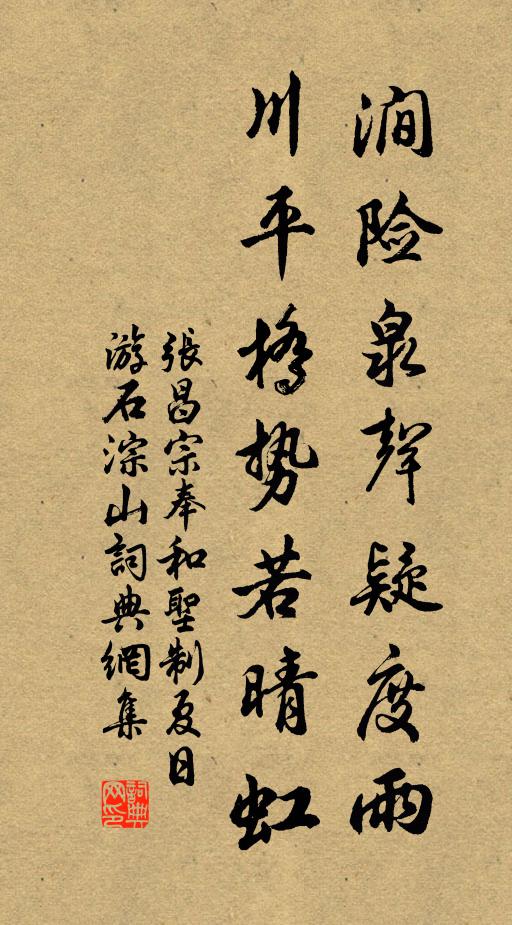 澗险泉聲疑度雨
川平橋势若晴虹
張昌宗奉和聖制夏日
游石淙山詞典網集
詞典
网印